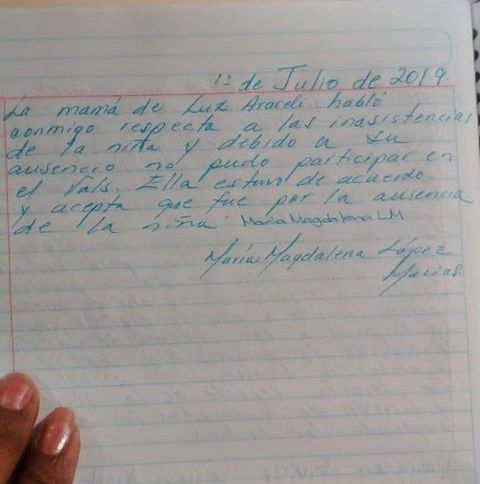 1º de Julio de 2019.
La mamá de Luz Araceli habló
conmigo respecta a las inasistencias
de la niña y debido a su
ausencia no pudo participar en
el Vals. Ella estuvo de acuerdo
y acepta que fue por la ausencia
de la niña. María Magdalena LM
María Magdalena López
Macias.